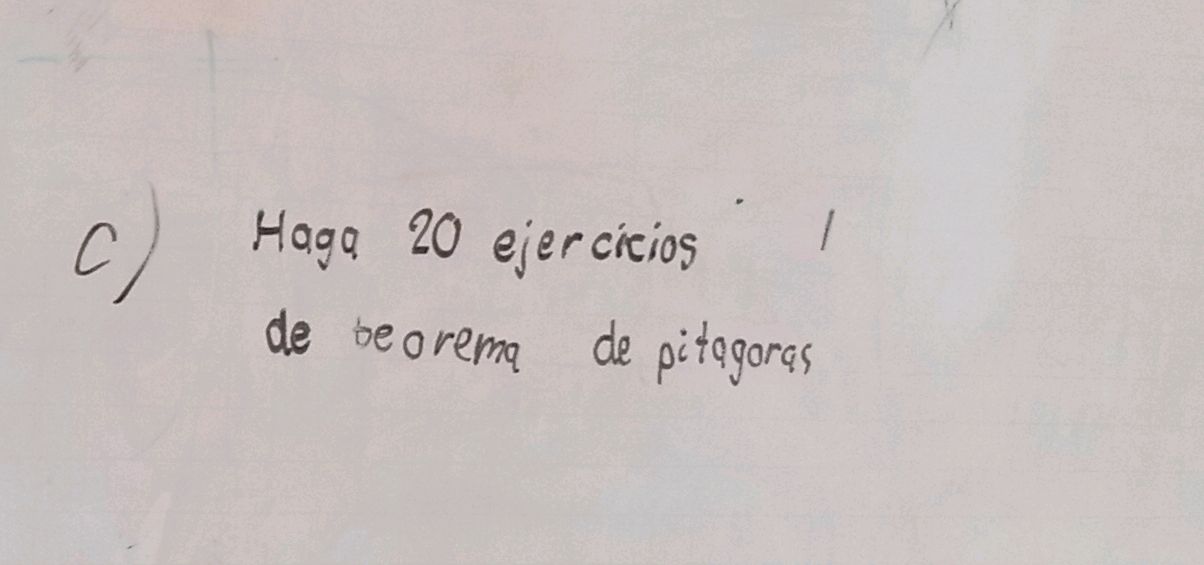 C) Haga 20 ejercicios
de teorema de pitagoras